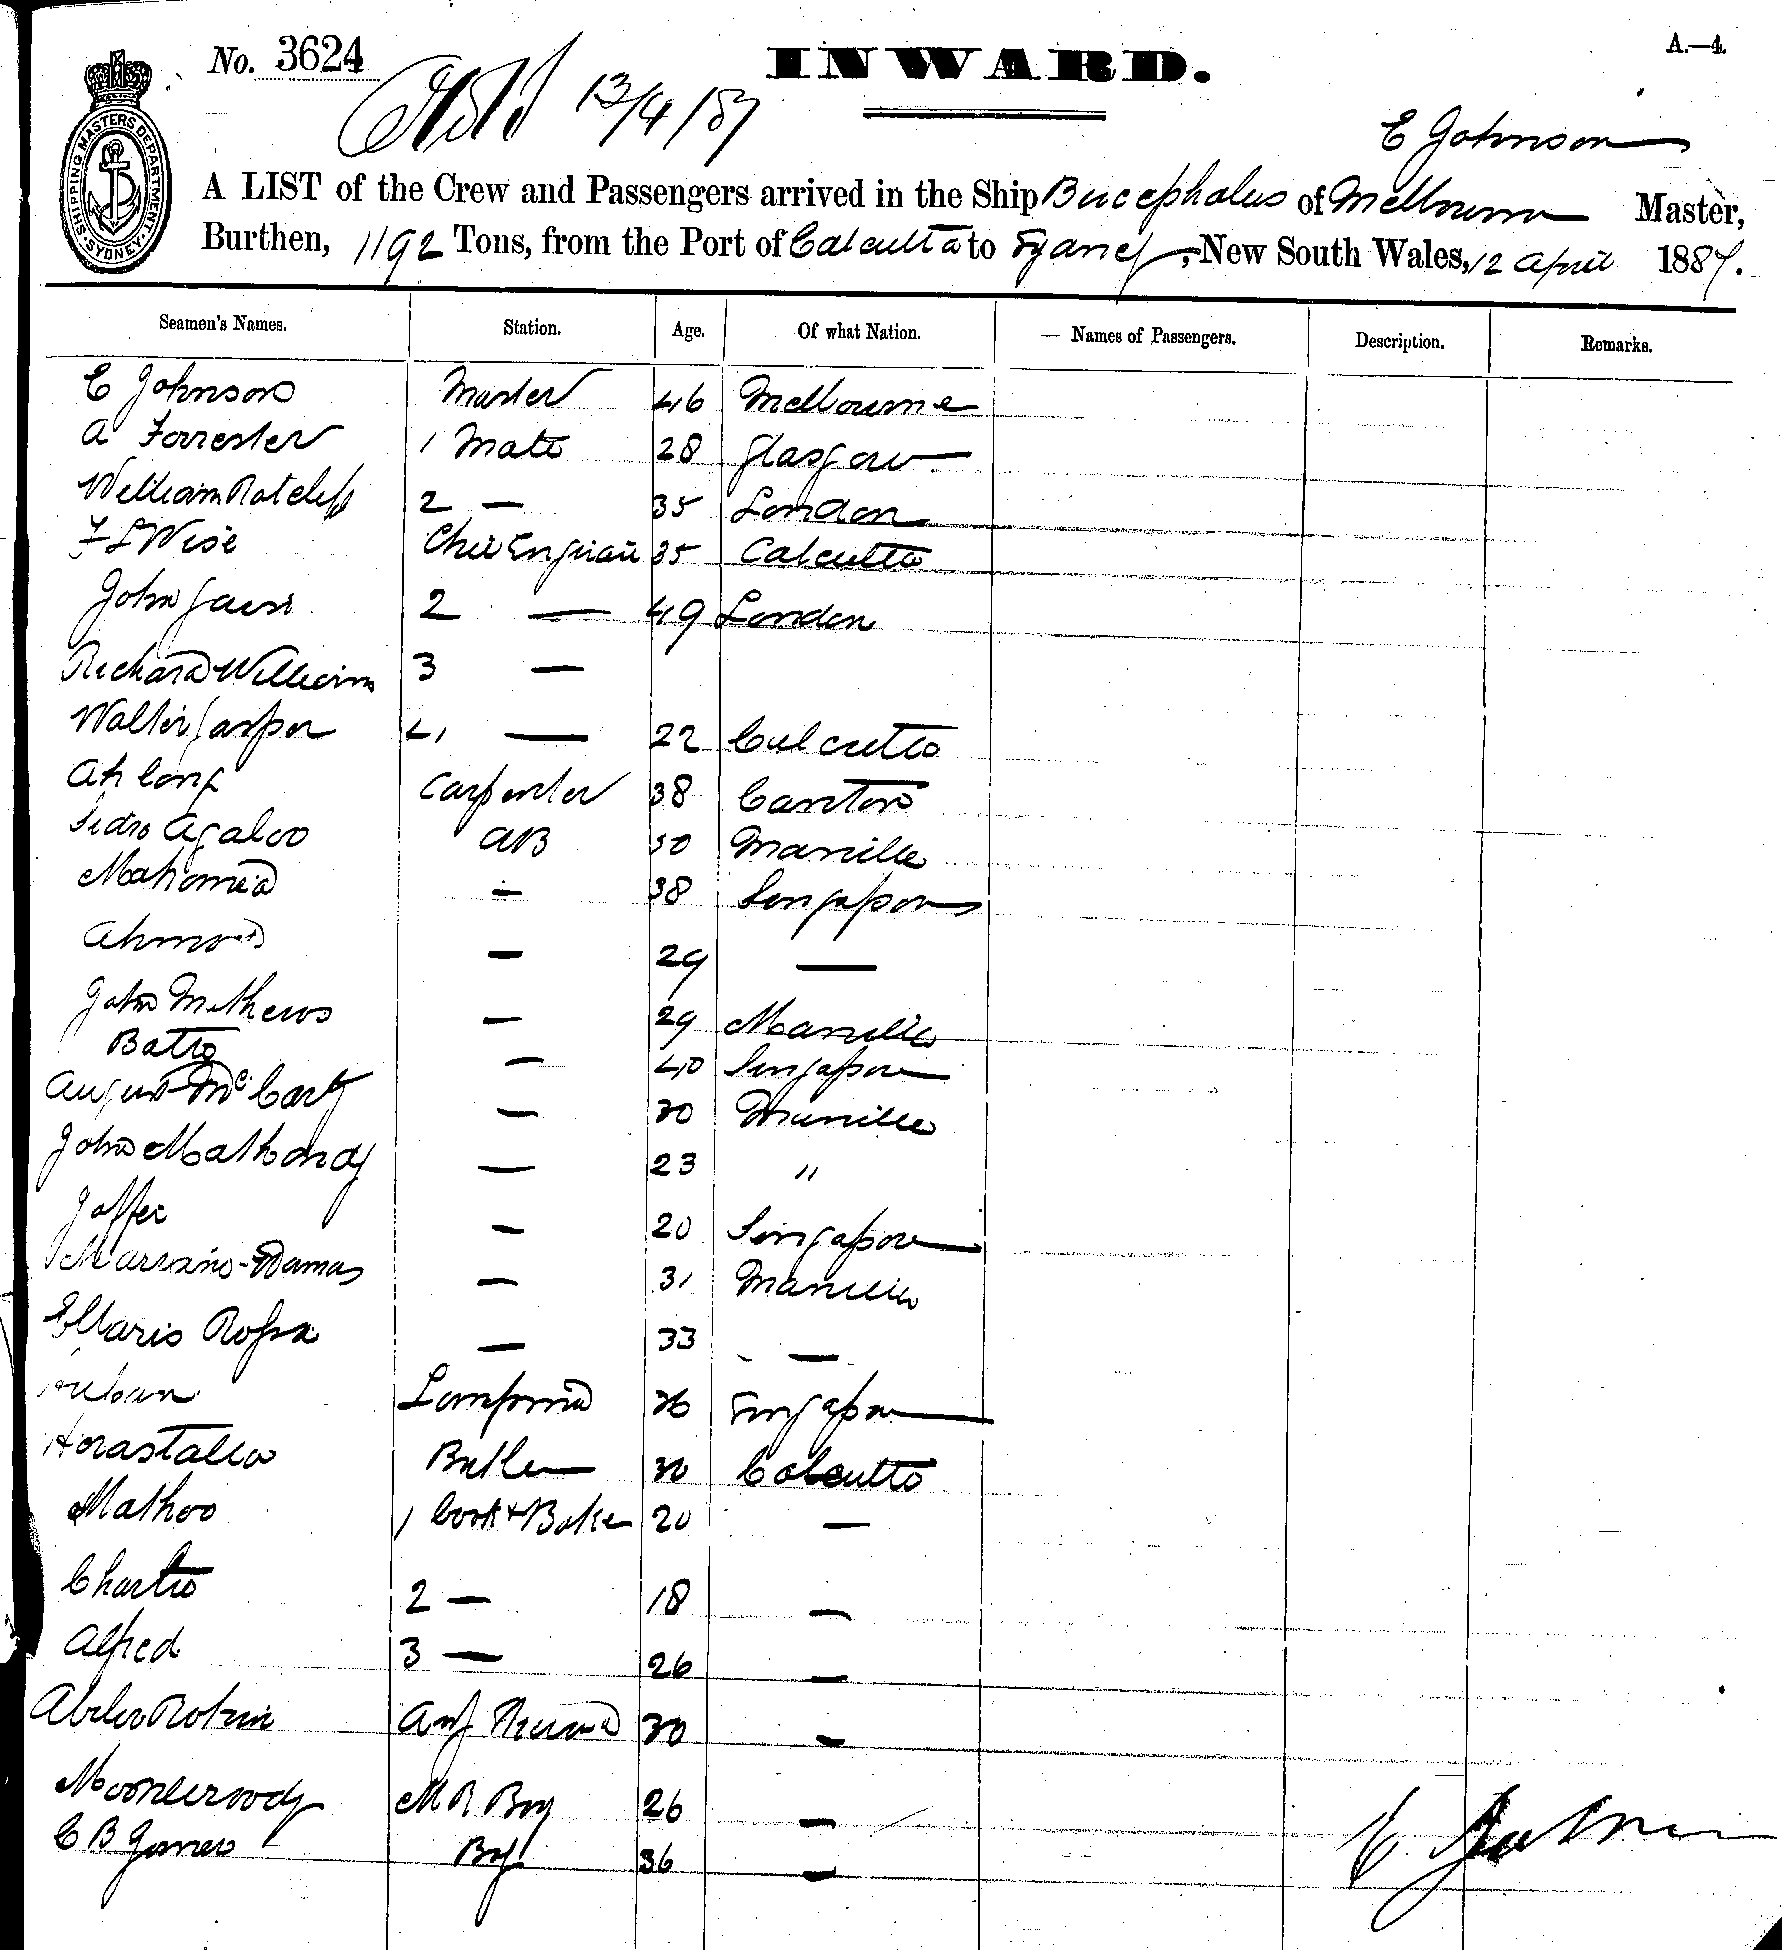 No. 3624
INWARD.
A.—4.
13/4/87
E Johnson
SHIPPING MASTERS DEPARTMENT. SYDNEY.
A LIST of the Crew and Passengers arrived in the Ship Bucephalus of Melbourne Master,
Burthen, 1192 Tons, from the Port of Calcutta to Sydney, New South Wales, 12 April 1887.
Seamen's Names. Station. Age. Of what Nation. Names of Passengers. Description. Remarks.
E Johnson Master 46 Melbourne
A Forrester 1 Mate 28 Glasgow
William Ratcliff 2 — 35 London
F L Wise 35 Calcutta
John 2 — 49 London
Richard William 3 —
Walter Jasper 4 — 22 Calcutta
Ah Cong Carpenter 38 Canton
Agaloo AB 50 Manilla
Mahomed — 38 Singapore
Ahmod — 29 —
John Mathews — 29 Manilla
Batto — 40 Singapore
August McCarty — 30 Manilla
John Mathondy — 23 "
Joffer — 20 Singapore
Marriano Damas — 31 Manilla
Rossa — 33 —
26 Singapore
Butler 30 Calcutta
Mathoo 1 Cook & Baker 20 —
Chartio 2 — 18 —
Alfred 3 — 26 —
30 —
M R Boy 26 —
C B Gomes Boy 36 —
E Johnson